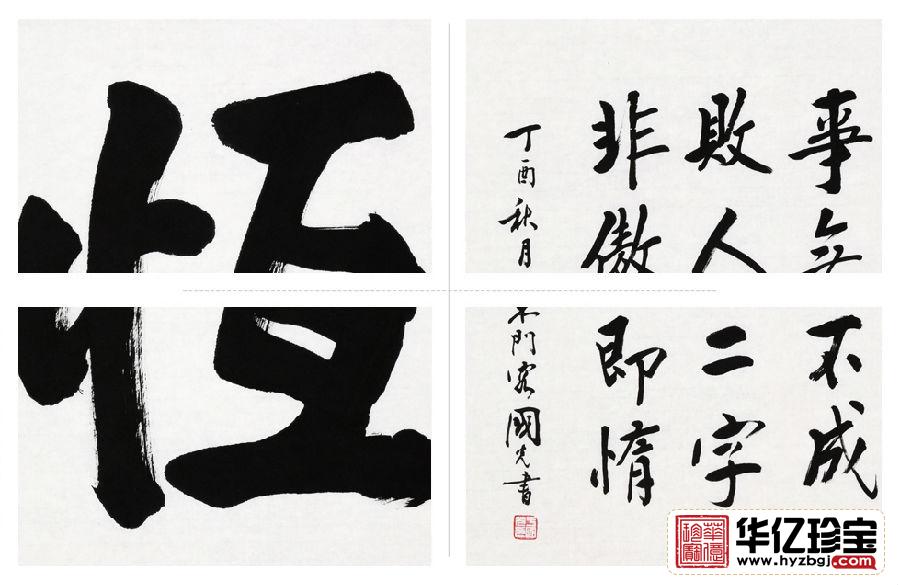 恒
事無不成
敗人二字
非傲即惰
丁酉秋月門客國光書
华亿珍宝
www.hyzbgj.com